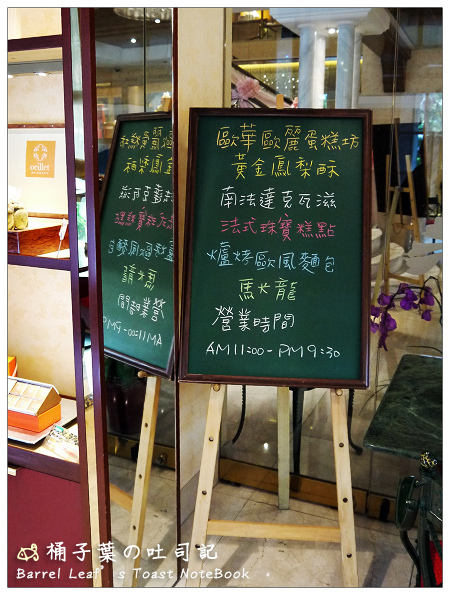 歐華歐麗蛋糕坊
黃金鳳梨酥
南法達克瓦滋
法式珠寶糕點
爐烤歐風麵包
馬卡龍
營業時間
AM11:00-PM9:30
oeillet
桶子葉の吐司記
Barrel Leaf's Toast NoteBook